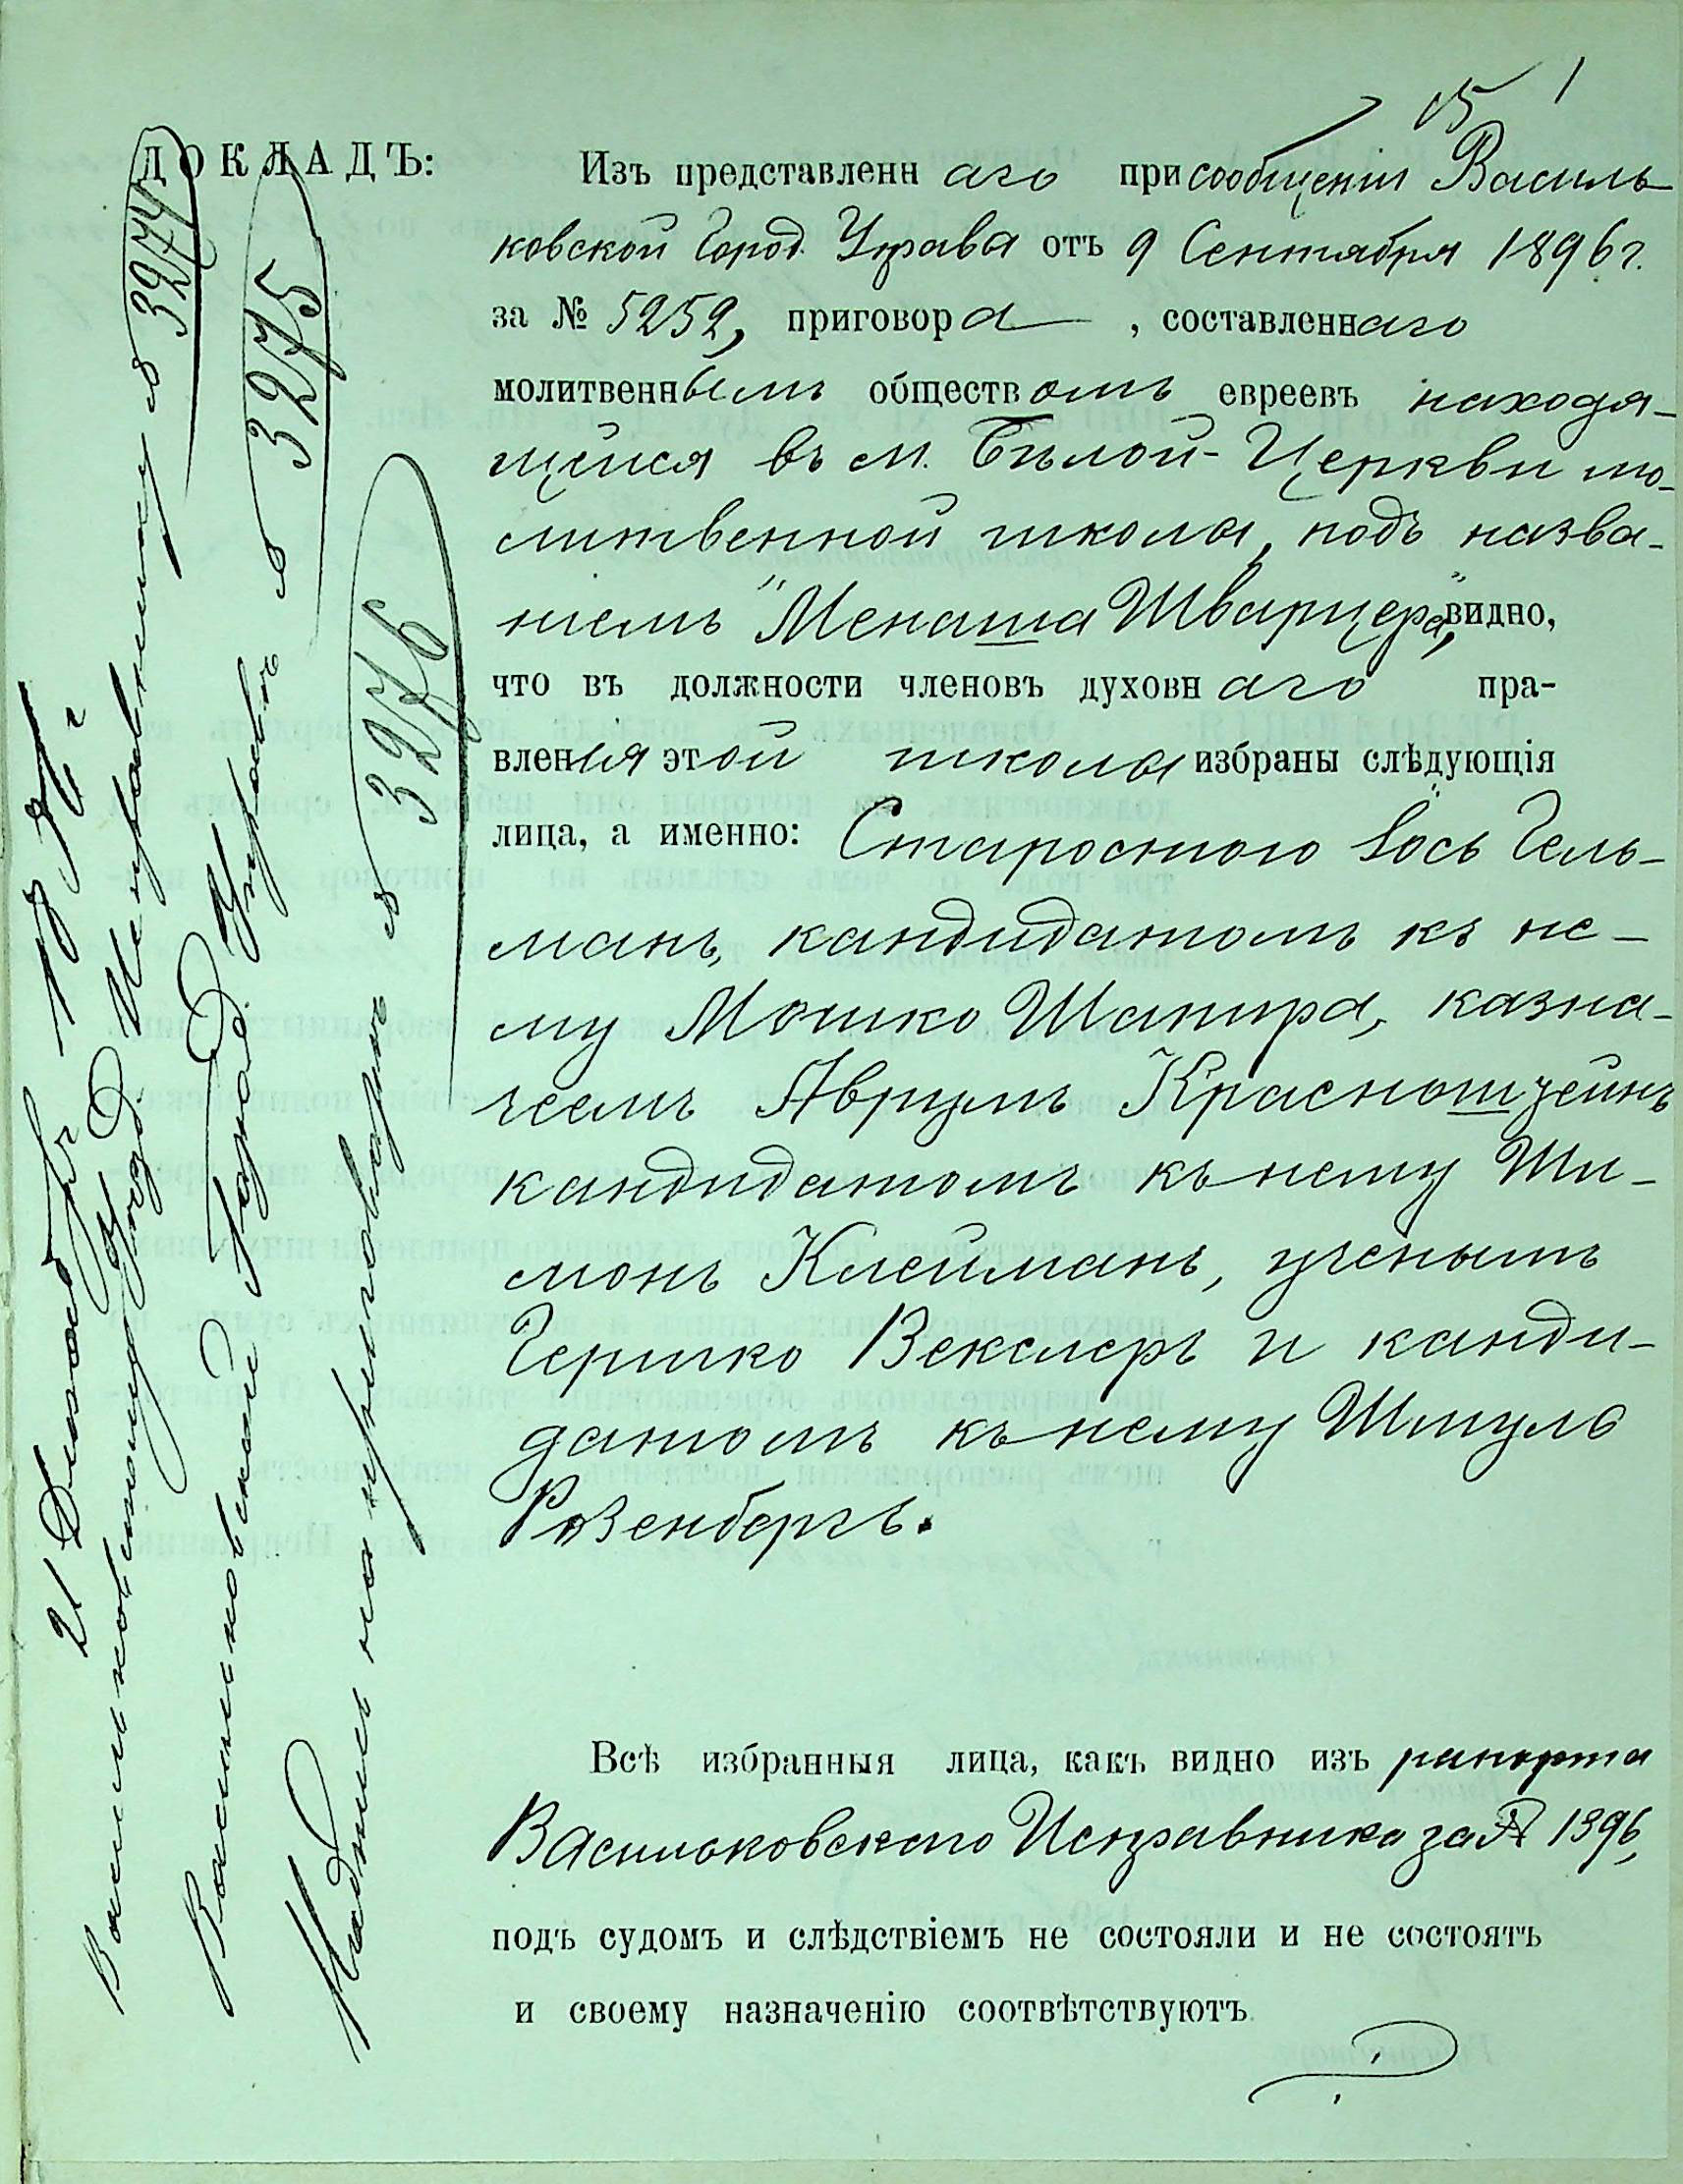 15 1
ДОКЛАДЪ:
Изъ представленнаго при сообщеніи Василь
ковской Город. Управы отъ 9 Сентября 1896 г.
за № 5252, приговора, составленнаго
молитвеннымъ обществомъ евреевъ находя-
щейся въ м. Бѣлой-Церкви мо-
литвенной школы, подъ назва-
ніемъ "Менаша Шварцера", видно,
что въ должности членовъ духовнаго пра-
вленія этой школы избраны слѣдующія
лица, а именно: Старостою Іось Гель-
манъ, кандидатомъ къ не-
му Мошко Шапира, казна-
чеемъ Аврумъ Красноштейнъ
кандидатомъ къ нему Ши-
монъ Клейманъ, ученымъ
Гершко Векслеръ и канди-
датомъ къ нему Шмуль
Розенбергъ.
Всѣ избранныя лица, какъ видно изъ рапорта
Васильковскаго Исправника за № 1396,
подъ судомъ и слѣдствіемъ не состояли и не состоятъ
и своему назначенію соотвѣтствуютъ.
Васильковскому Уѣзд. Исправнику № 3274
Васильковской Город. Управѣ № 3275
Надпись на приговорѣ № 3276